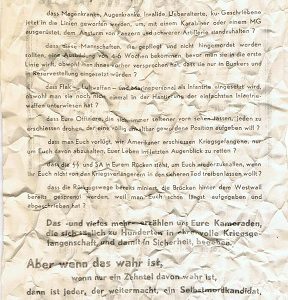 dass Magenkranke, Augenkranke, Invalide, Ueberalterte, ku-Geschriebene
jetzt in die Linien geworfen werden, um, mit einem Karabiner oder einem MG
ausgerüstet, dem Ansturm von Panzern und schwerer Artillerie standzuhalten?
dass diese Mannschaften, die gepflegt und nicht hingemordet werden
sollten, eine Ausbildung von 4-6 Wochen bekommen, bevor man sie in die erste
Linie wirft, obwohl man ihnen vorher versprochen hat, dass sie nur in Bunkern und
in Reservestellung eingesetzt würden?
dass Flak-, Luftwaffen- und Marinepersonal als Infanterie eingesetzt wird,
obwohl man sie noch nicht einmal in der Handhabung der einfachsten Infanterie-
waffen unterwiesen hat?
dass Eure Offiziere, die sich immer seltener vorn sehen lassen, jeden zu
erschiessen drohen, der eine völlig unhaltbar gewordene Position aufgeben will?
dass man Euch vorlügt, wir Amerikaner erschiessen Kriegsgefangene, nur
um Euch davon abzuhalten, Euer Leben im letzten Augenblick zu retten?
dass die SS und SA in Eurem Rücken steht, um Euch niederzuknallen, wenn
Ihr Euch nicht von den Kriegsverlängerern in den sicheren Tod treiben lassen wollt?
dass die Rückzugswege bereits miniert, die Brücken hinter dem Westwall
bereits gesprengt werden, weil man Euch schon längst aufgegeben und
abgeschrieben hat?
Das - und vieles mehr - erzählen uns Eure Kameraden,
die sich täglich zu Hunderten in ehrenvolle Kriegsge-
fangenschaft und damit in Sicherheit, begeben.
Aber wenn das wahr ist,
wenn nur ein Zehntel davon wahr ist,
dann ist jeder, der weitermacht, ein Selbstmordkandidat,